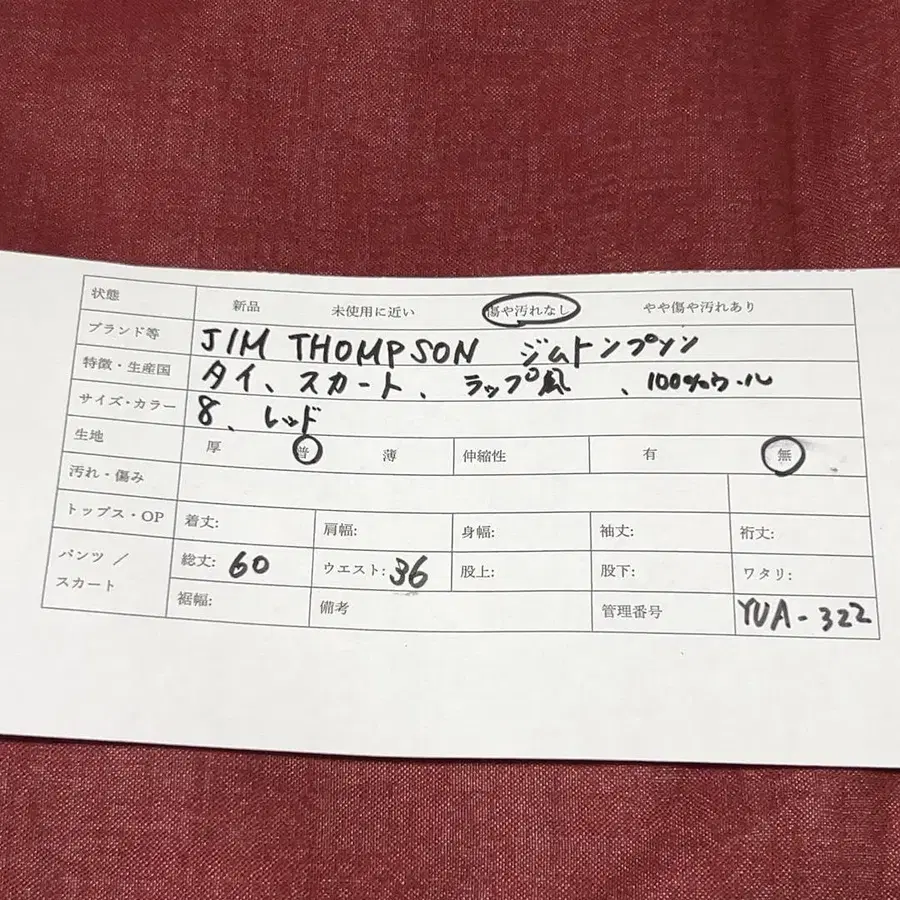 状態 新品 未使用に近い 傷や汚れなし やや傷や汚れあり
ブランド等 JIM THOMPSON ジムトンプソン
特徴・生産国 タイ、スカート、ラップ風、100%ウール
サイズ・カラー 8、レッド
生地 厚 普 薄 伸縮性 有 無
汚れ・傷み
トップス・OP 着丈: 肩幅: 身幅: 袖丈: 裄丈:
パンツ / スカート 総丈: 60 ウエスト: 36 股上: 股下: ワタリ:
裾幅: 備考 管理番号 YUA-322